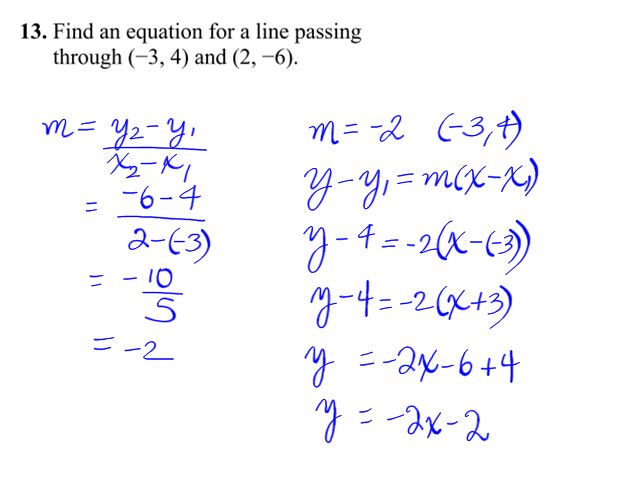 13. Find an equation for a line passing
through (−3, 4) and (2, −6).
m = y₂ - y₁ / x₂ - x₁
= -6 - 4 / 2 - (-3)
= -10 / 5
= -2
m = -2 (-3, 4)
y - y₁ = m(x - x₁)
y - 4 = -2(x - (-3))
y - 4 = -2(x + 3)
y = -2x - 6 + 4
y = -2x - 2